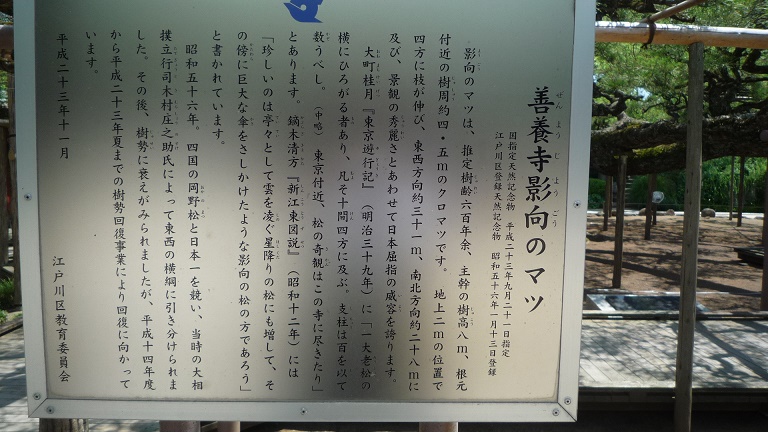 善養寺影向のマツ
国指定天然記念物 平成二十三年九月二十一日指定
江戸川区登録天然記念物 昭和五十六年一月十三日登録
影向のマツは、推定樹齢六百年余、主幹の樹高八m、根元
付近の樹周約四・五mのクロマツです。 地上二mの位置で
四方に枝が伸び、東西方向約三十一m、南北方向約二十八mに
及び、景観の秀麗さとあわせて日本屈指の威容を誇ります。
大町桂月『東京遊行記』(明治三十九年)に「一大老松の
横にひろがる者あり、凡そ十間四方に及ぶ。 支柱は百を以て
数うべし。(中略) 東京付近、松の奇観はこの寺に尽きたり」
とあります。鏑木清方『新江東図説』(昭和十二年)には
「珍しいのは亭々として雲を凌ぐ星降りの松にも増して、そ
の傍に巨大な傘をさしかけたような影向の松の方であろう」
と書かれています。
昭和五十六年。四国の岡野松と日本一を競い、当時の大相
撲立行司木村庄之助氏によって東西の横綱に引き分けられま
した。その後、樹勢に衰えがみられましたが、平成十四年度
から平成二十三年夏までの樹勢回復事業により回復に向かって
います。
平成二十三年十一月
江戸川区教育委員会